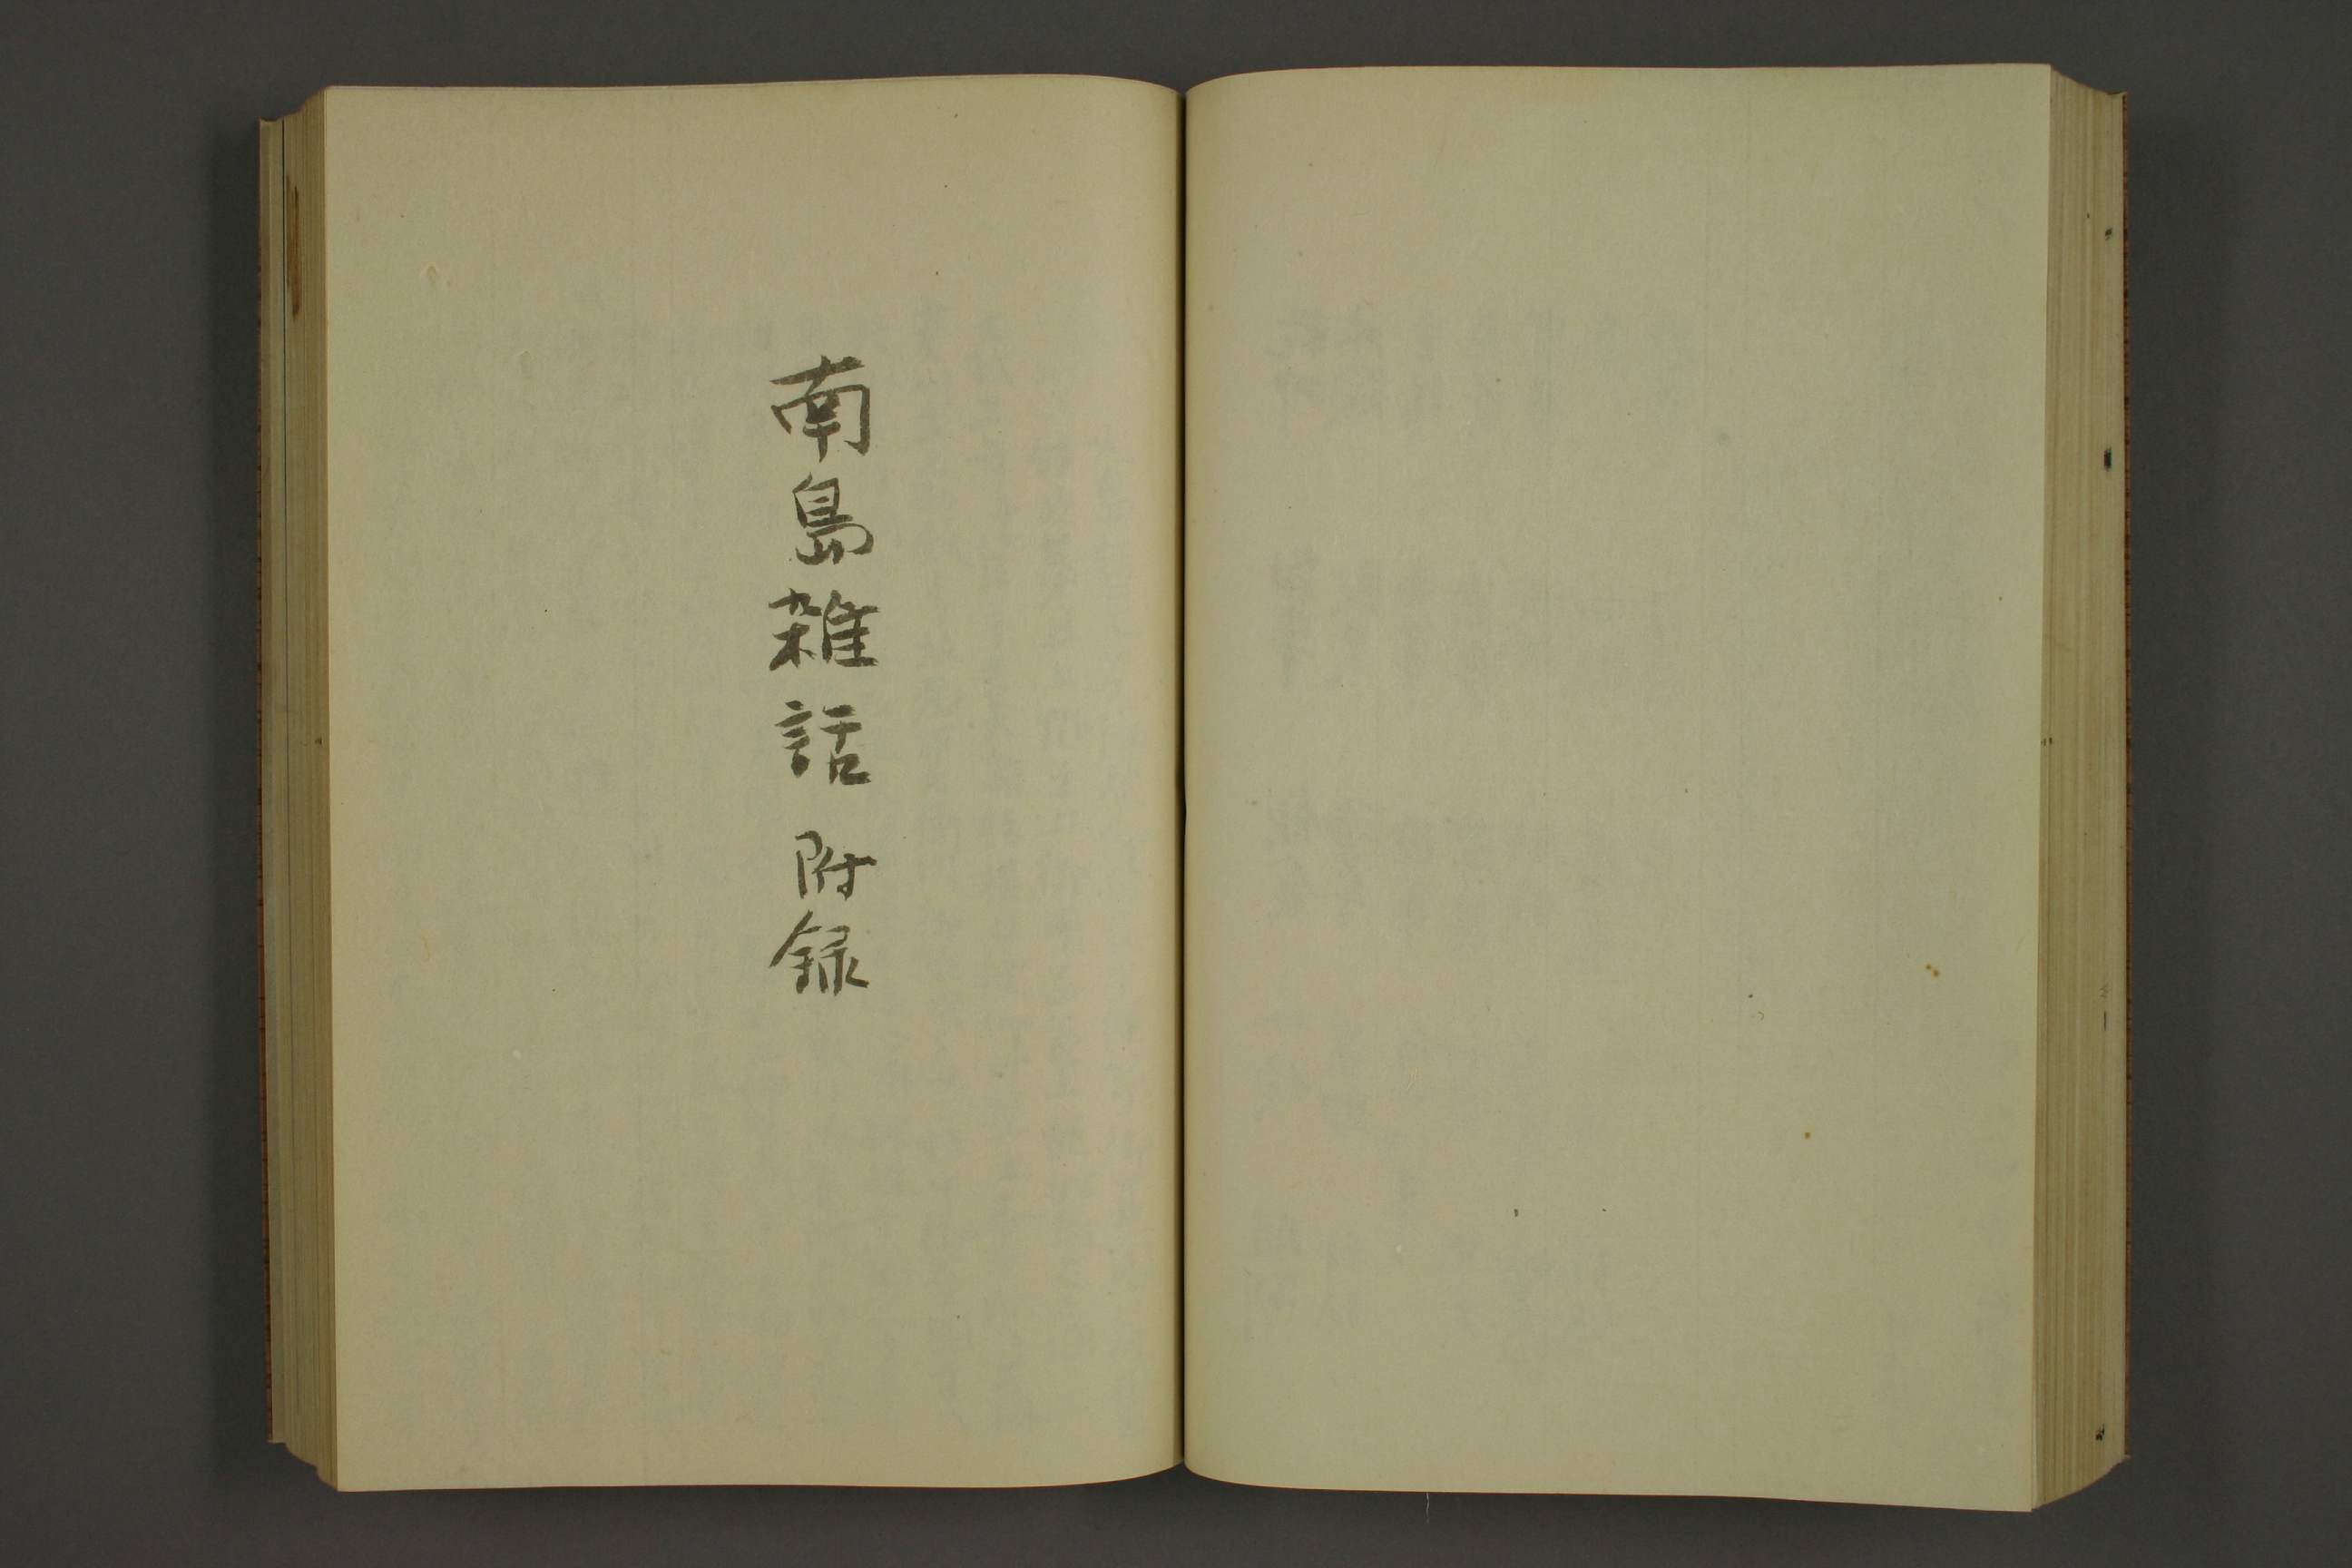 南島雑話 附録